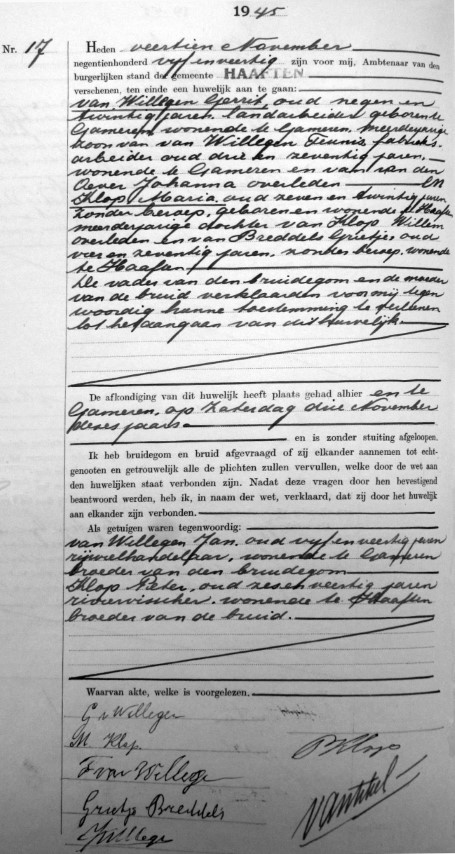 1945
Nr. 17 Heden veertien November
negentienhonderd vyf en veertig zijn voor mij, Ambtenaar van den
burgerlijken stand der gemeente HAAFTEN
verschenen, ten einde een huwelijk aan te gaan:
van Willegen Gerrit, oud negen en
twintig jaren, landarbeider geboren te
Gameren, wonende te Gameren, meerderjarige
zoon van van Willegen Teunis, fabrieks-
arbeider oud drie en zeventig jaren,
wonende te Gameren en van van den
Oever Johanna overleden en
Klop Maria, oud zeven en twintig jaren
zonder beroep, geboren en wonende te Haaften
meerderjarige dochter van Klop Willem
overleden en van Breddels Grietje, oud
vier en zeventig jaren, zonder beroep, wonende
te Haaften
De vader van den bruidegom en de moeder
van de bruid verklaarden voor mij tegen
woordig hunne toestemming te verleenen
tot het aangaan van dit huwelijk.
De afkondiging van dit huwelijk heeft plaats gehad alhier en te
Gameren, op Zaterdag drie November
dezes jaars
en is zonder stuiting afgeloopen.
Ik heb bruidegom en bruid afgevraagd of zij elkander aannemen tot echt-
genooten en getrouwelijk alle de plichten zullen vervullen, welke door de wet aan
den huwelijken staat verbonden zijn. Nadat deze vragen door hen bevestigend
beantwoord werden, heb ik, in naam der wet, verklaard, dat zij door het huwelijk
aan elkander zijn verbonden.
Als getuigen waren tegenwoordig:
van Willegen Jan, oud vyf en veertig jaren
rijwielhandelaar, wonende te Gameren
broeder van den bruidegom
Klop Peter, oud zes en veertig jaren
riviervisscher, wonende te Haaften
broeder van de bruid.
Waarvan akte, welke is voorgelezen.
G v Willegen
M Klop.
P Klop
T van Willege
Grietje Breddels
J v Willege